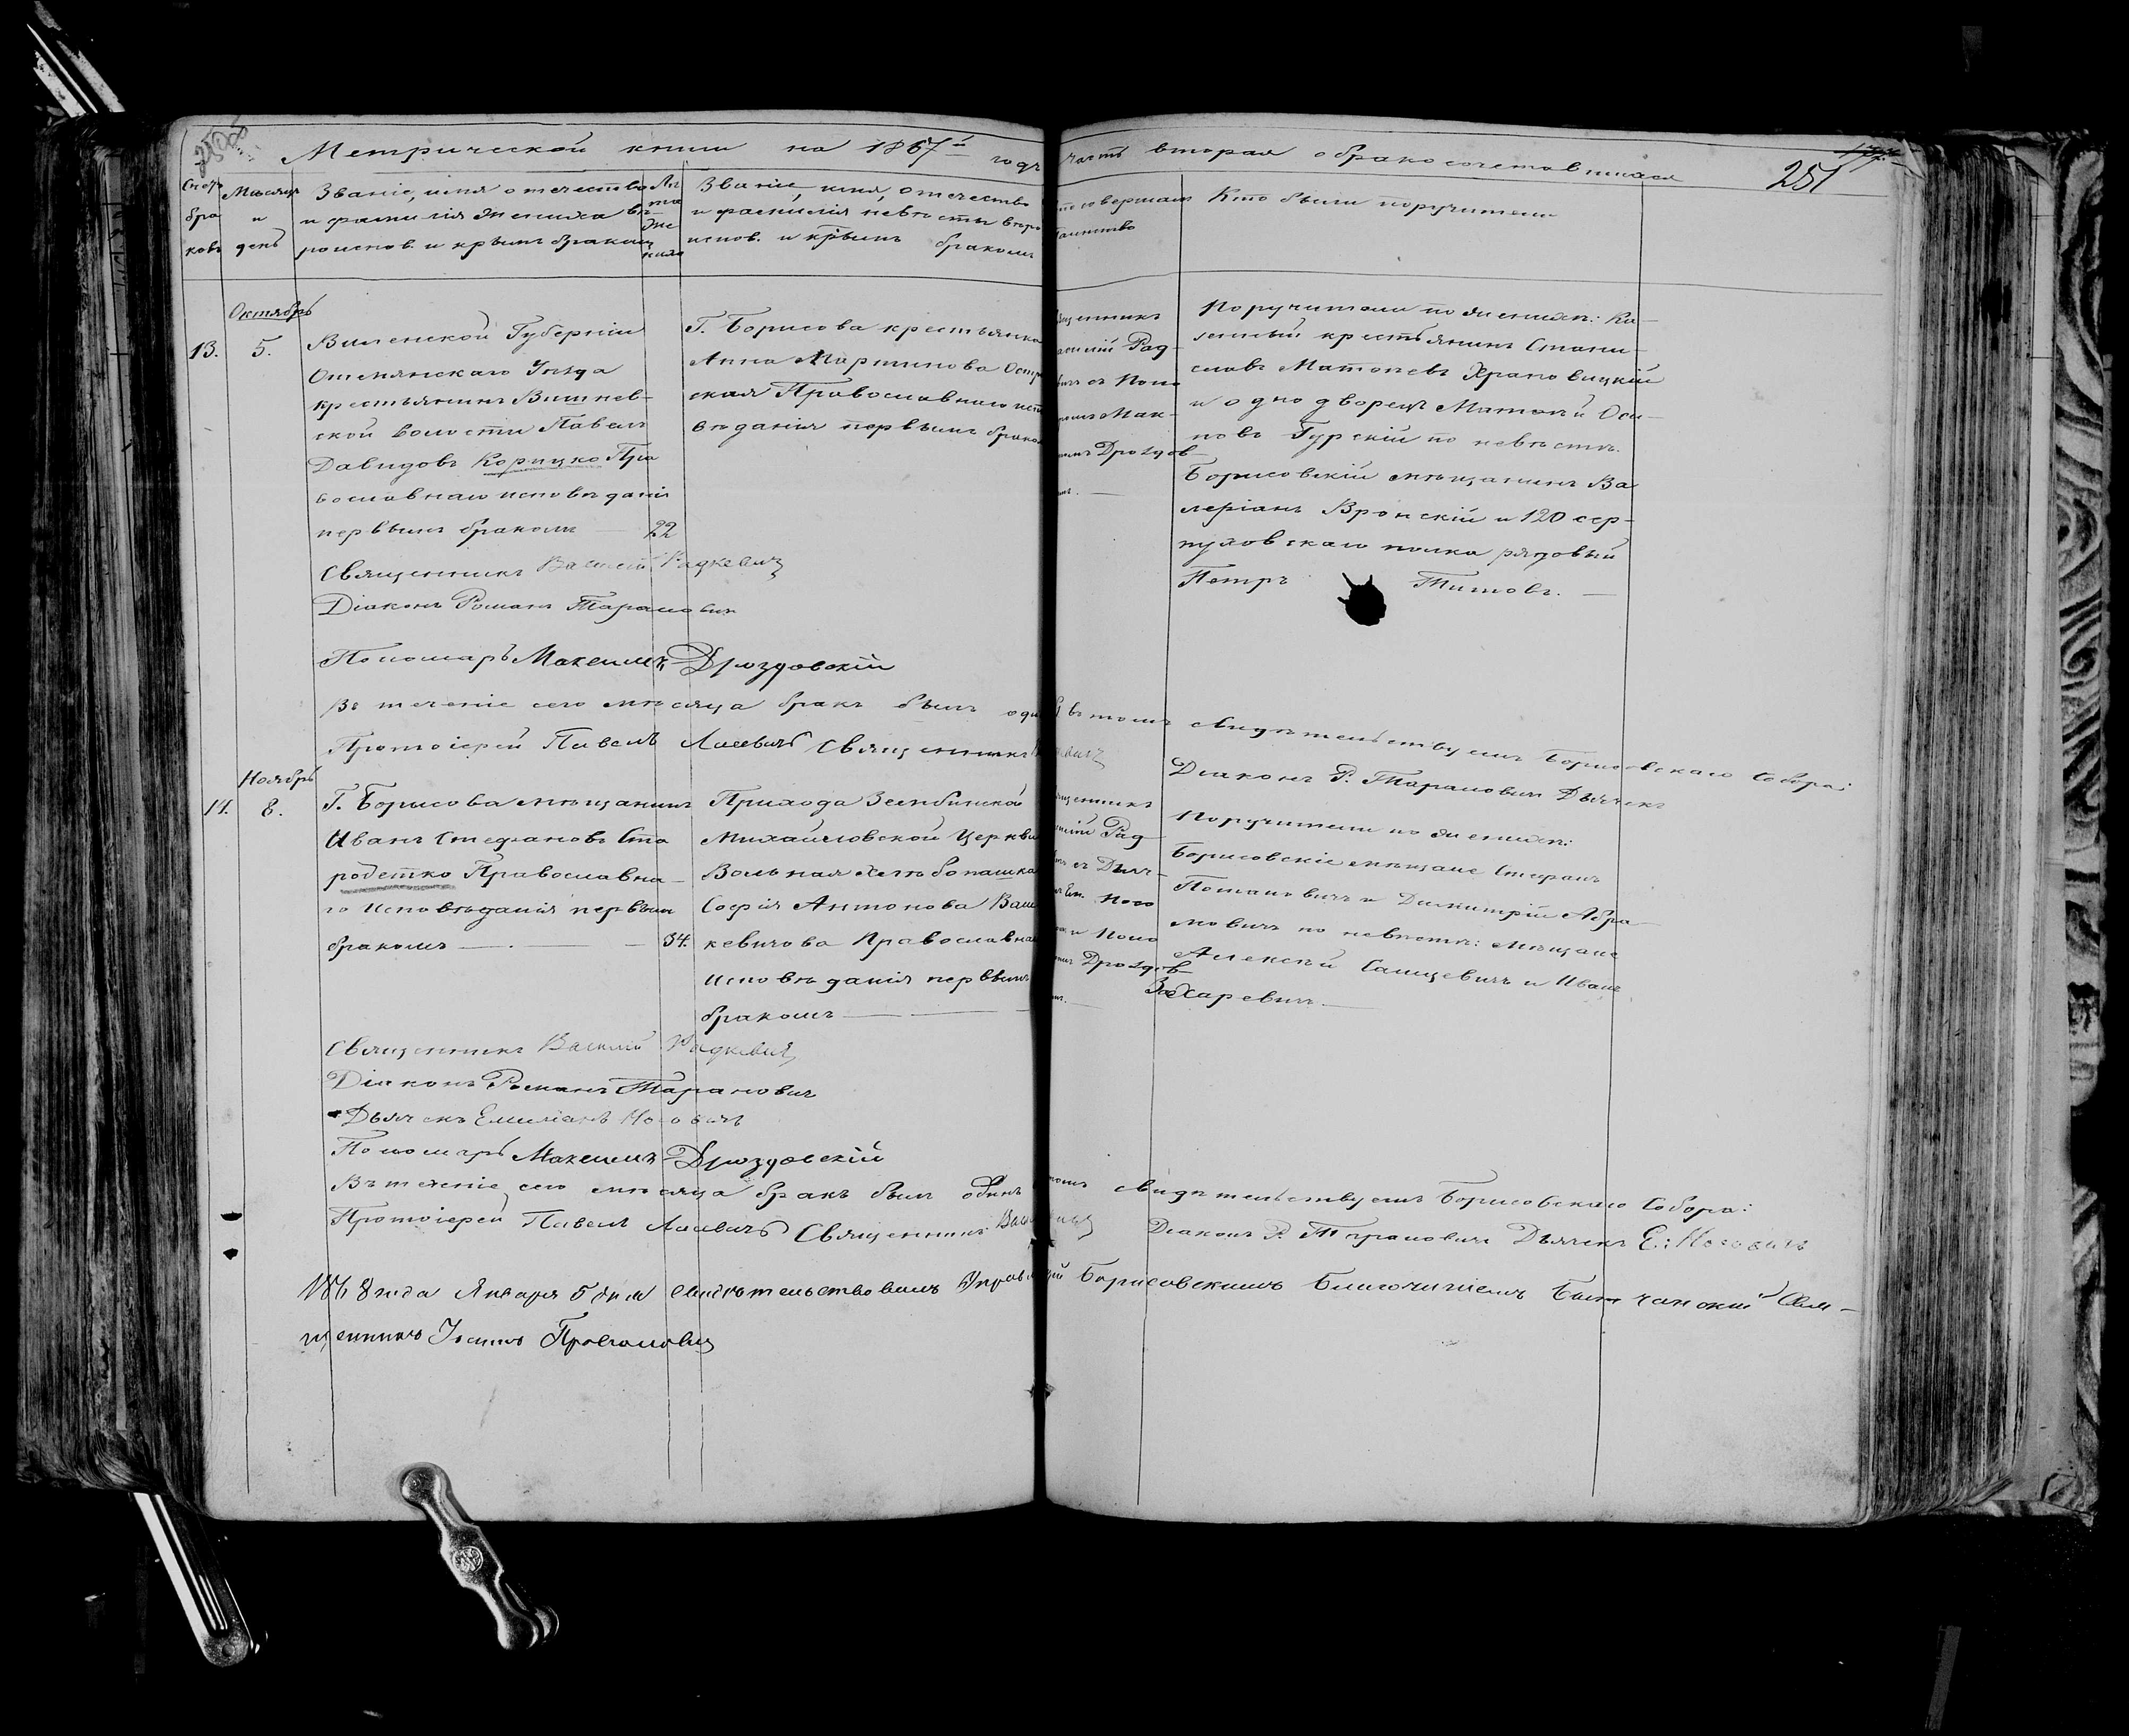 Метрической книги на 1867й годъ часть вторая о бракосочетавшихся
251
Счетъ браковъ
Мѣсяцъ и день
Званіе, имя отечество
и фамилія жениха вѣ-
роиспов. и крымъ бракомъ
Лѣта жениха
Званіе, имя, отечество
и фамилія невѣсты вѣро
испов. и крымъ бракомъ
совершалъ
таинство
Кто были поручители
Октябрь
13.
5.
Виленской Губерніи
Ошмянскаго Уѣзда
крестьянинъ Вишнев-
ской волости Павелъ
Давидовъ Корицко Пра
вославнаго исповѣданія
первымъ бракомъ
22
Г. Борисова крестьянка
Анна Мартинова
ская Православнаго исп
вѣданія первымъ брако
Рад-
Мак-
Дроздов-
Поручители по женихѣ: Ка-
зенный крестьянинъ Стани-
славъ Матѳіевъ Храповицкій
и однодворецъ Матѳій Оси-
повъ Гурскій по невѣстѣ.
Борисовскій мѣщанинъ Ва
леріанъ Вронскій и 120 сер-
пуховскаго полка рядовый
Петръ Титовъ.
Священникъ Василій Радкевичъ
Діаконъ Романъ Таранович
Пономаръ Максимъ Дроздовскій
Въ теченіе сего мѣсяца бракъ былъ оди въ томъ свидѣтельствуемъ Борисовскаго Собора:
Протоіерей Павелъ Священникъ
Діаконъ Р. Тарановичъ Дьячекъ
Ноябрь
14.
8.
Г. Борисова мѣщанинъ
Иванъ Стефановъ Ста
родетко Православна-
го Исповѣданія первымъ
бракомъ
34.
Прихода Зембинской
Михайловской Церкви
Вольная хлѣбопашка
Софія Антонова Ваш
кевичова Православна
Исповѣданія первымъ
бракомъ
Рад
Дьяч-
Ем. Ного
и Поно
Дроздов-
Поручители по женихѣ:
Борисовскіе мѣщане Стефанъ
Потаповичъ и Димитрій Абра-
мовичъ по невѣстѣ: мѣщане
Алексѣй Саицевичъ и Иванъ
Захаревичъ.
Священникъ Василій Радкевичъ
Діаконъ Романъ Тарановичъ
Дьячекъ Емиліанъ Ноговичъ
Пономаръ Максимъ Дроздовскій
Въ теченіе сего мѣсяца бракъ былъ одинъ томъ свидѣтельствуемъ Борисовскаго Собора:
Протоіерей Павелъ Священникъ
Діаконъ Р. Тарановичъ Дьячекъ Е: Ноговичъ
1868 года Января 5 дня свидѣтельствовалъ Борисовскимъ Благочиніемъ Свя-
щенникъ Іоаннъ